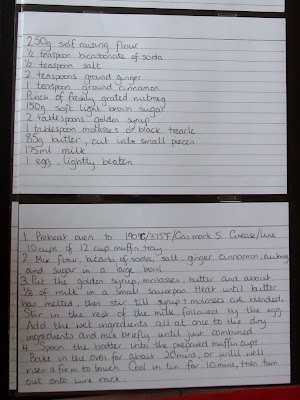 250g self raising flour
1/2 teaspoon bicarbonate of soda
1/2 teaspoon salt
2 teaspoons ground ginger
1 teaspoon ground cinnamon
Pinch of freshly grated nutmeg
150g soft light brown sugar
2 tablespoons golden syrup
1 tablespoon molasses or black treacle
85g butter, cut into small pieces
175ml milk
1 egg, lightly beaten
1. Preheat oven to 190°C/375°F/Gas mark 5. Grease/line
10 cups of 12 cup muffin tray.
2. Mix flour, bicarb of soda, salt, ginger, cinnamon, nutmeg
and sugar in a large bowl
3. Put the golden syrup, molasses, butter and about
1/3 of milk in a small saucepan. Heat until butter
has melted, then stir till syrup & molasses are blended.
Stir in the rest of the milk, followed by the egg.
Add the wet ingredients all at once to the dry
ingredients and mix briefly until just combined
4. Spoon the batter into the prepared muffin cups.
Bake in the oven for about 20mins, or until well
risen & firm to touch. Cool in tin for 10mins, then turn
out onto wire rack.